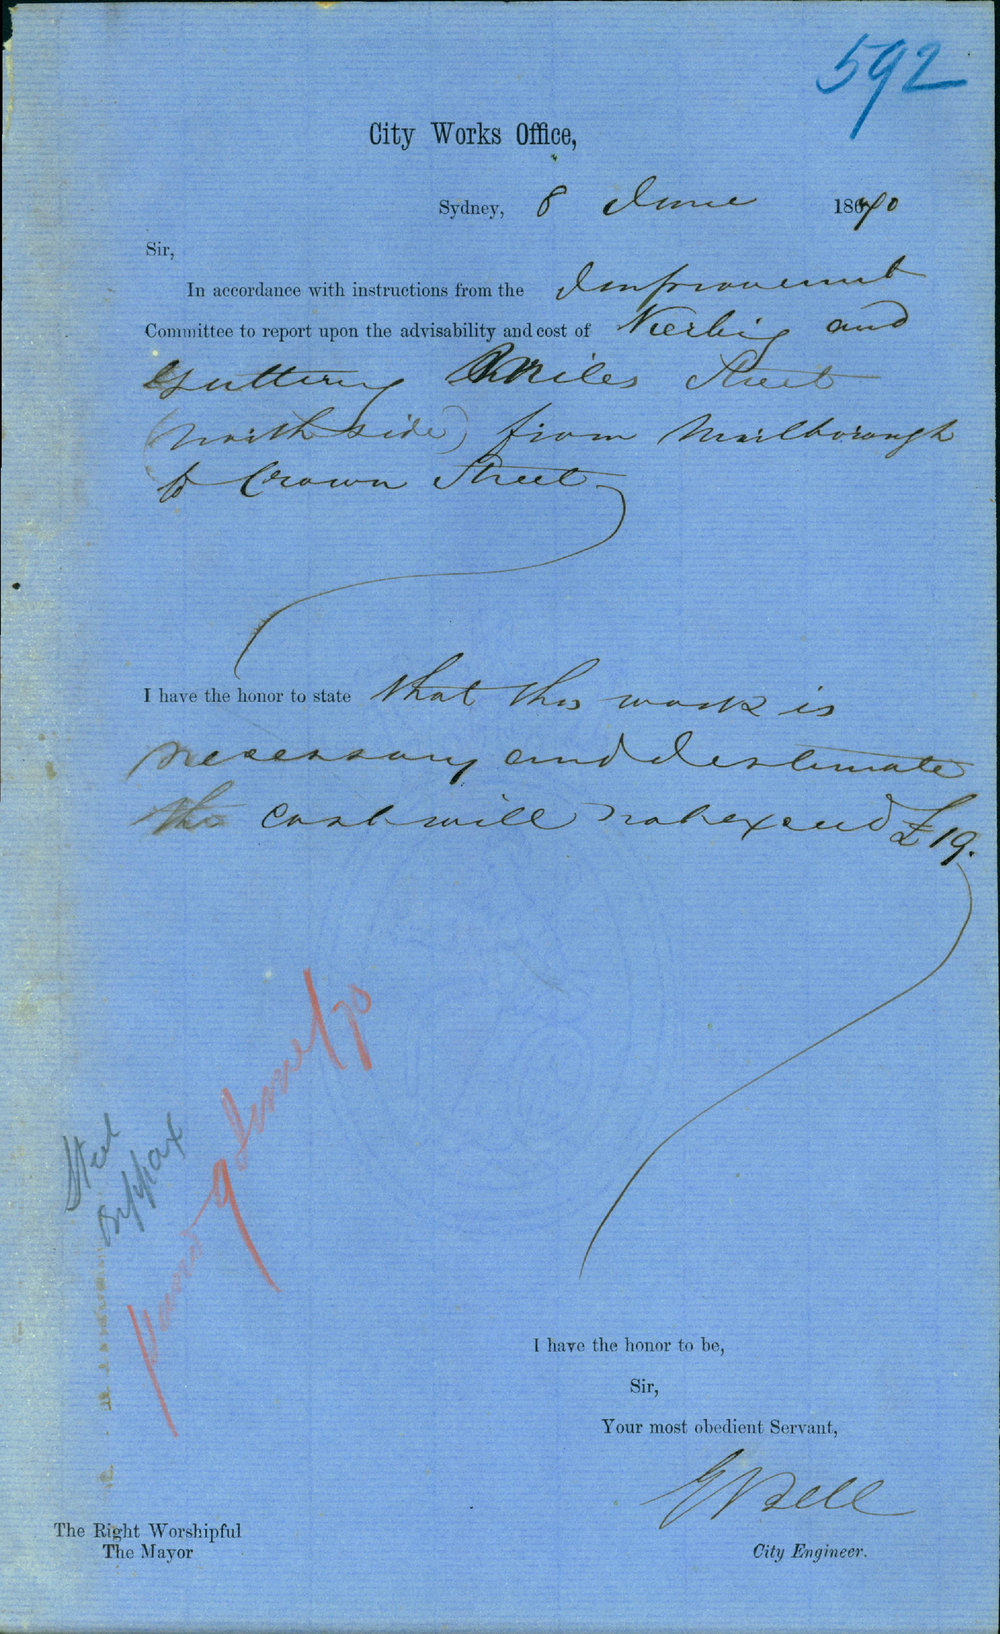 592
City Works Office,
Sydney, 8 June 1870
Sir,
In accordance with instructions from the Improvement
Committee to report upon the advisability and cost of Kerbing and
Guttering Miles Street
(North side) from Marlborough
to Crown Street
I have the honor to state that this work is
necessary and I estimate
the cost will not exceed £19.
9 June/70
I have the honor to be,
Sir,
Your most obedient Servant,
E Bell
The Right Worshipful
The Mayor
City Engineer.